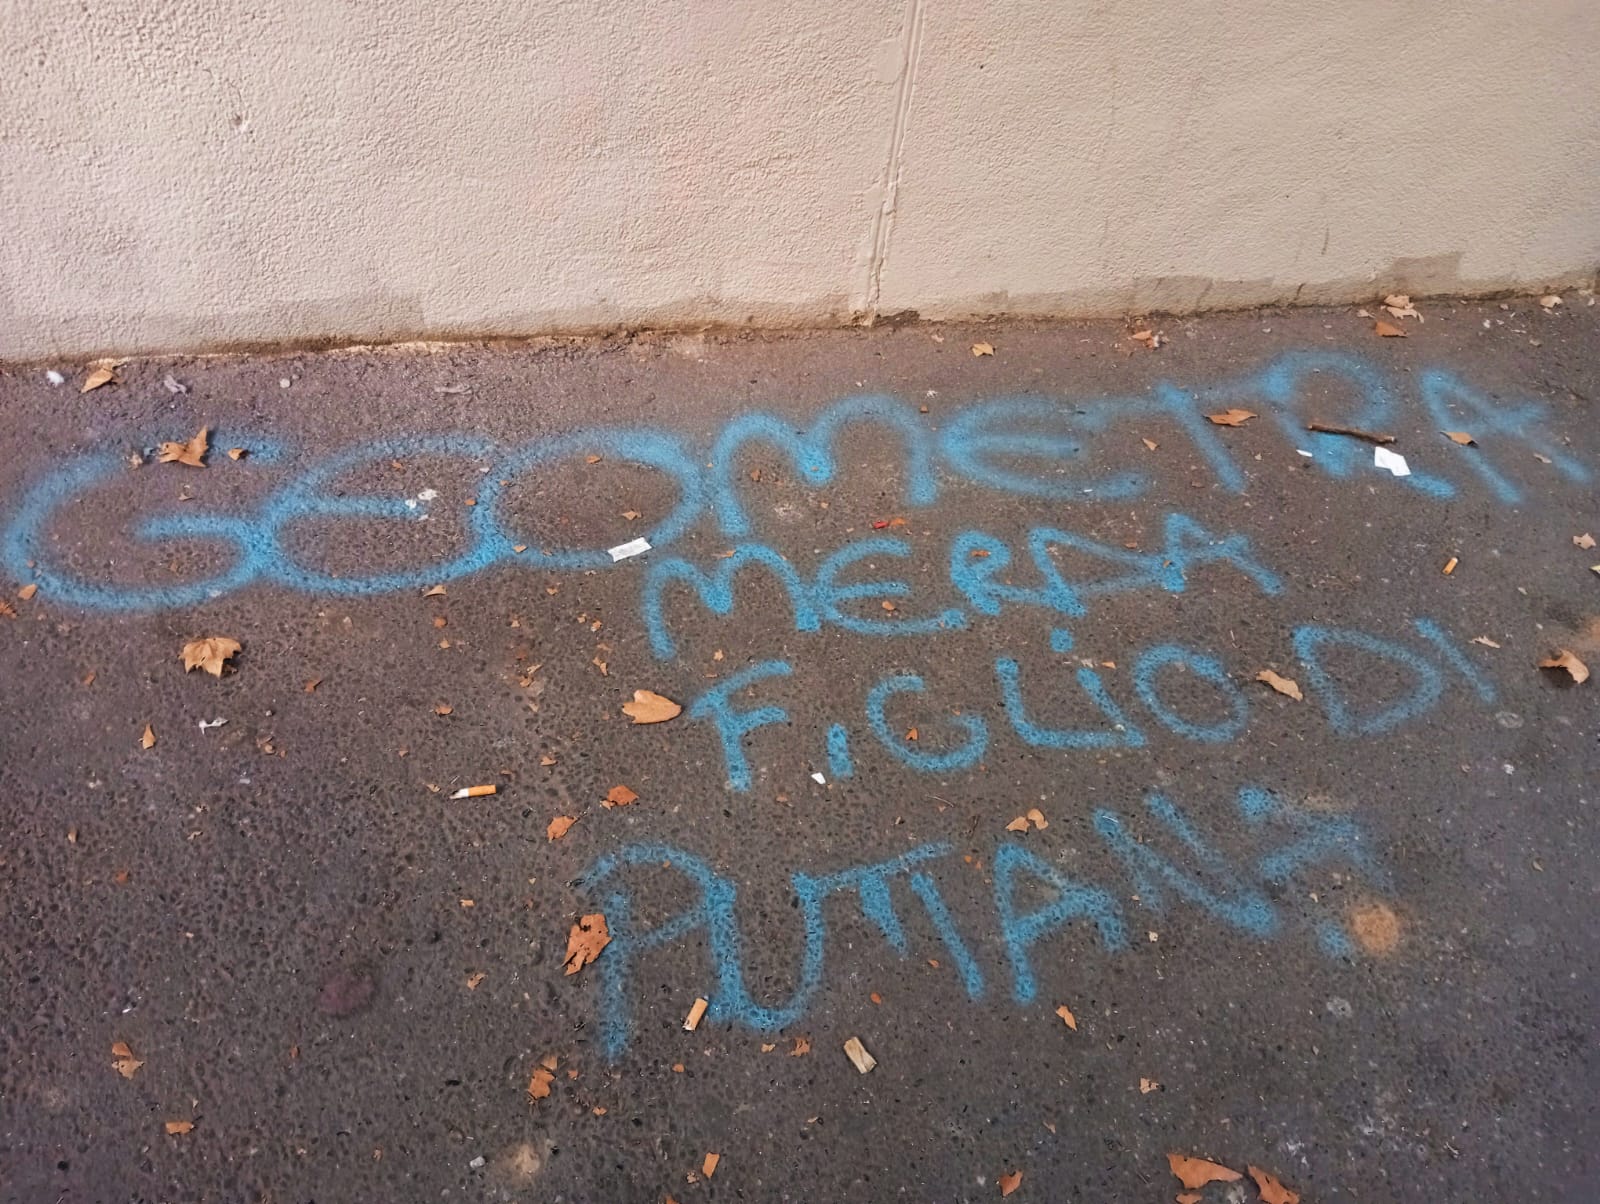 GEOMETRA
MERDA
FiGLiO DI
PUTTANA